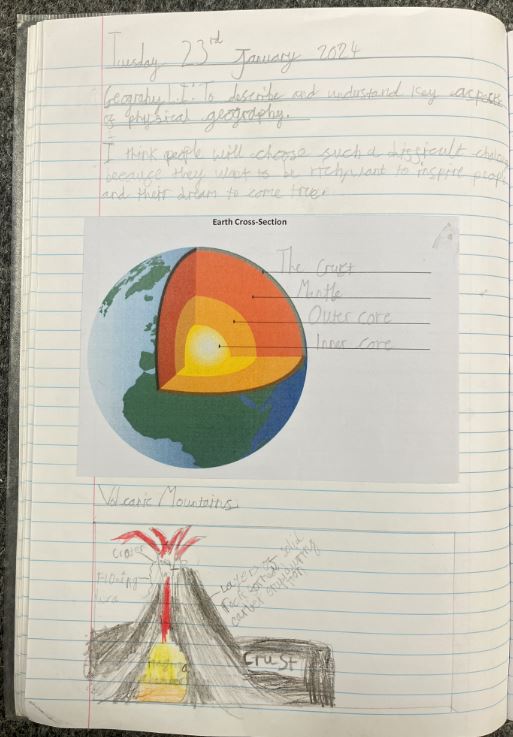 Tuesday 23rd January 2024
Geography L.I: To describe and understand key aspects
of physical geography.
I think people will choose such a difficult
because they want to be rich, want to inspire people
and their dream to come true.
Earth Cross-Section
The Crust
Mantle
Outer core
Inner core
Volcanic Mountains
Crater
Layers of solid
rock
during
earlier eruption
Crust